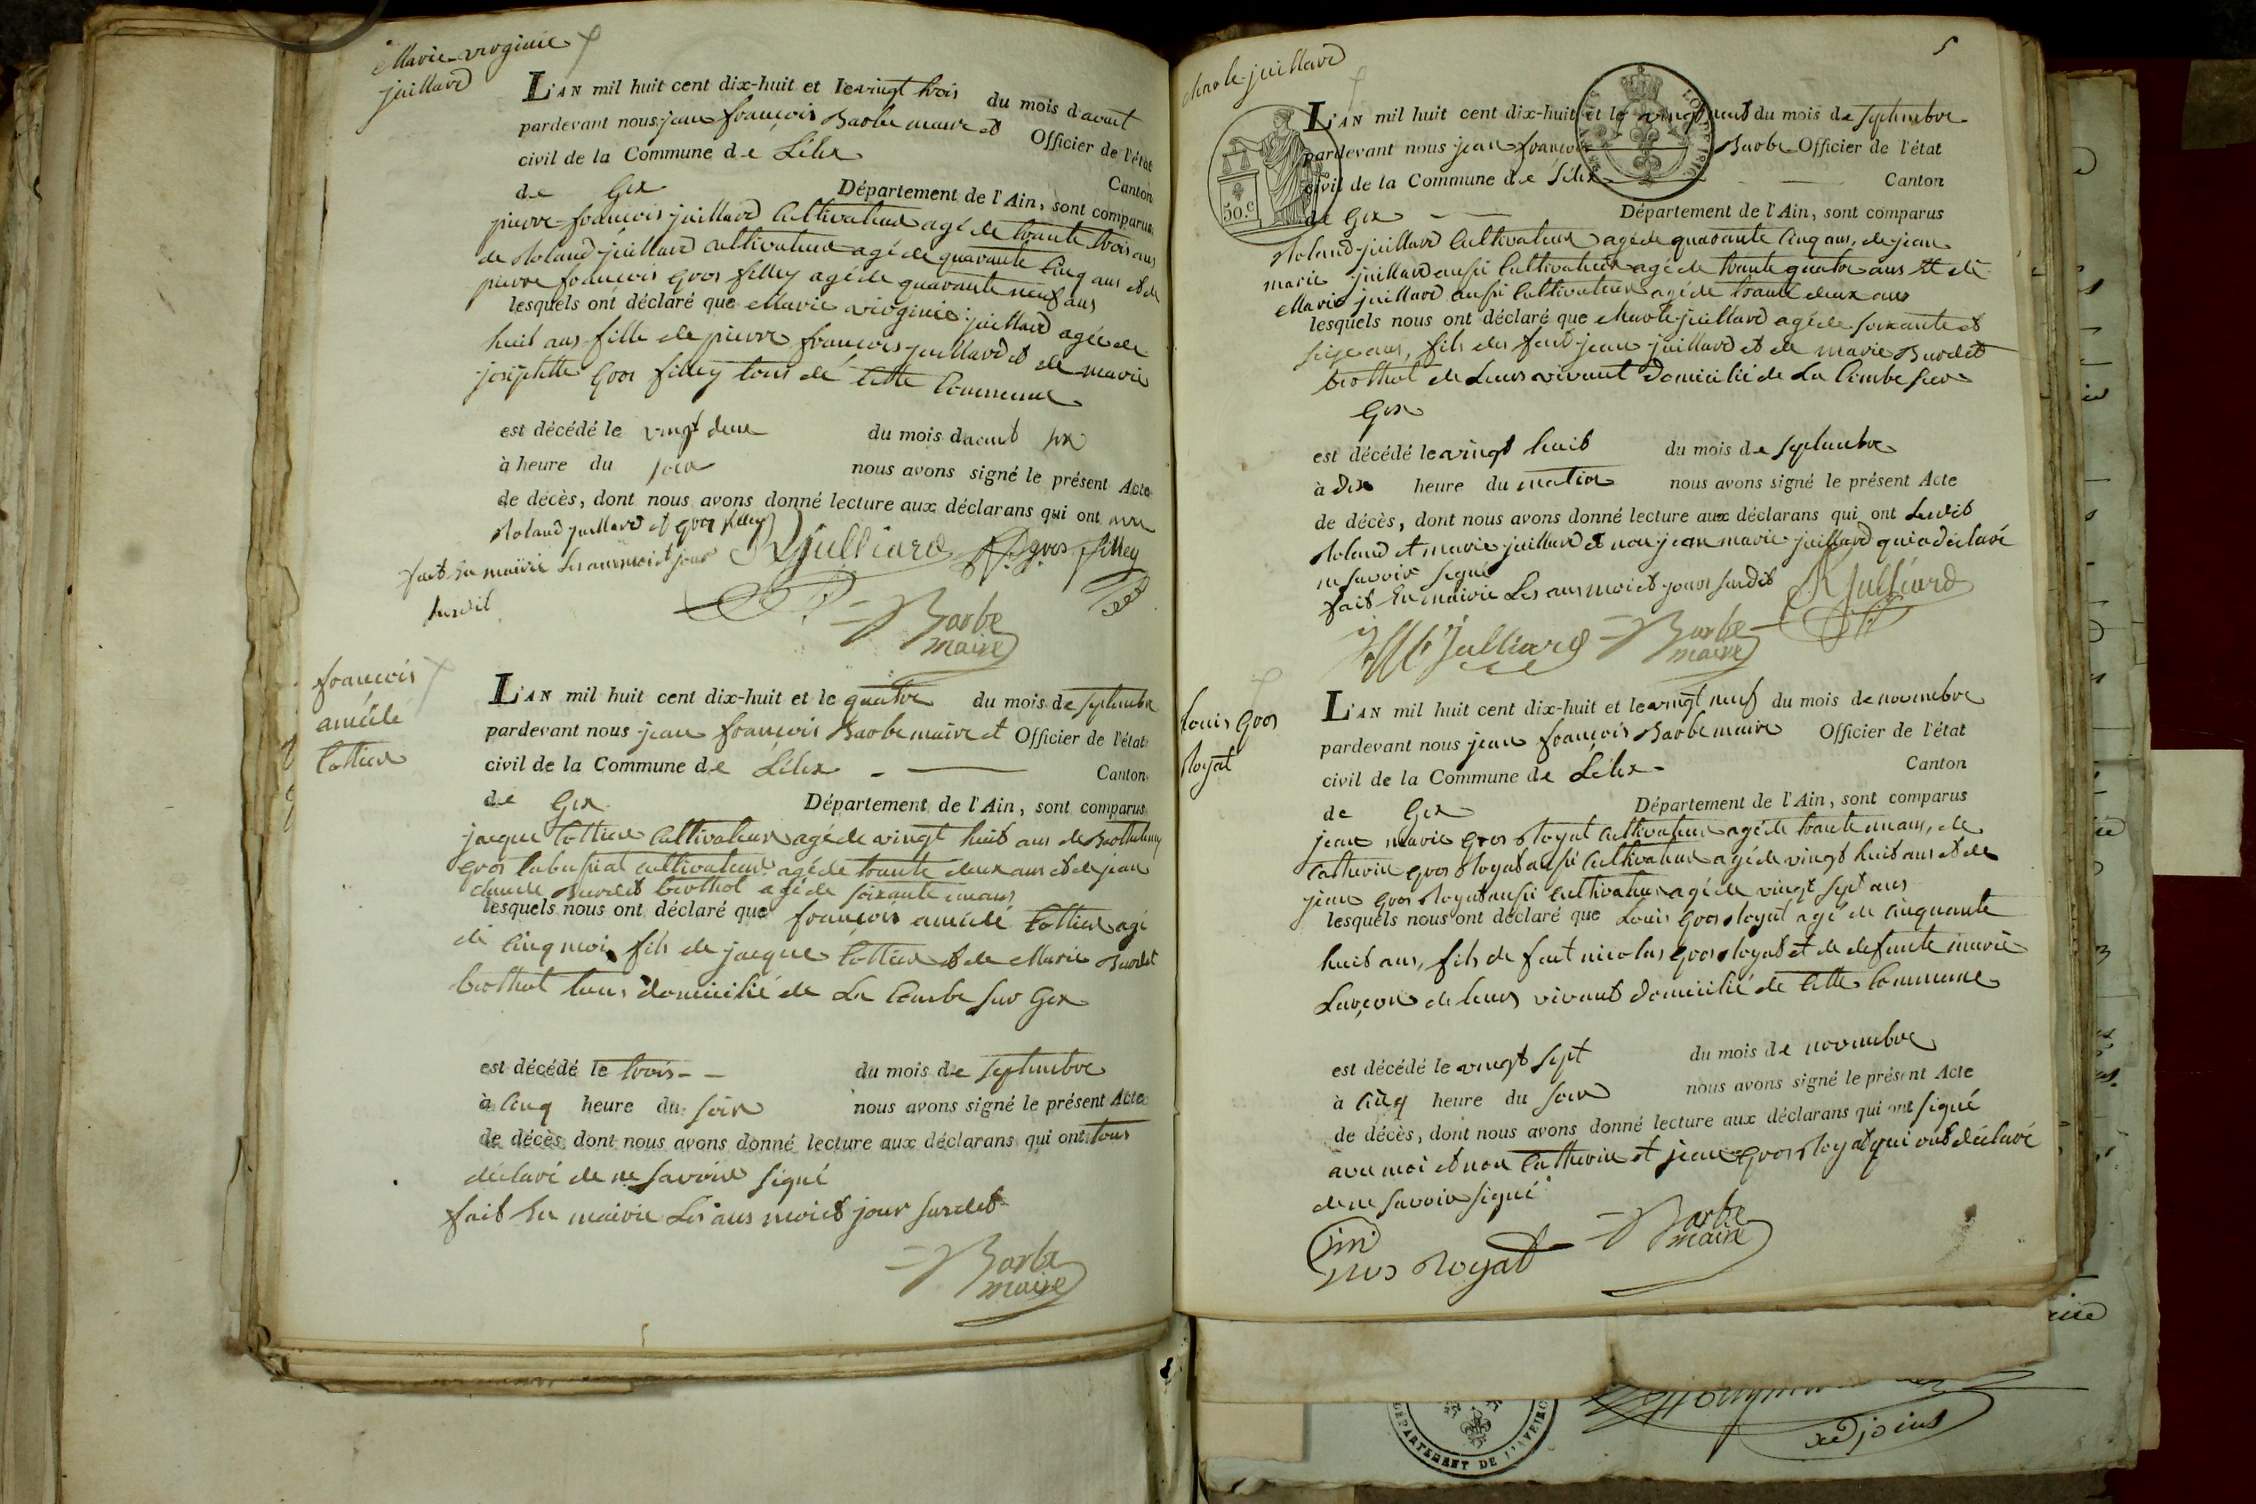 Marie virginie
juillard
L'AN mil huit cent dix-huit et le vingt trois du mois d'aout
pardevant nous jean françois Barbe maire et Officier de l'état
civil de la Commune de Lélex Canton
de Gex Département de l'Ain, sont comparus
pierre françois juillard Cultivateur agé de trante trois ans
de Roland juillard cultivateur agé de quarante Cinq ans et de
pierre françois gros filley agé de quarante neuf ans
lesquels ont déclaré que Marie virginie juillard agée de
huit ans fille de pierre françois juillard et de marie
josephette gros filley tous de Cette Commune
est décédé le vingt deux du mois daout six
à heure du soir nous avons signé le présent Acte
de décès, dont nous avons donné lecture aux déclarans qui ont
Roland juillard et gros filley
fait En mairie Les ans mois et jour
susdit
R Julliard P. f. gros filley
Barbe
maire
françois
amédé
Cottier
L'AN mil huit cent dix-huit et le quatre du mois de septembre
pardevant nous jean françois Barbe maire et Officier de l'état
civil de la Commune de Lélex - Canton
de Gex Département de l'Ain, sont comparus
jacque Cottier Cultivateur agé de vingt huit ans de Barthelemy
gros cultivateur agé de trante deux ans et de jean
claude Burdet agé de soixante
lesquels nous ont déclaré que françois amédé Cottier agé
de Cinq mois fils de jacque Cottier et de Marie Burdet
tous domicilié de La Combe sur Gex
est décédé le trois - - du mois de septembre
à Cinq heure du soir nous avons signé le présent Acte
de décès dont nous avons donné lecture aux déclarans qui ont tous
déclaré de ne savoir signé
fait En mairie Les ans mois et jour susdit
Barbe
maire
5
juillard
50.c
L'AN mil huit cent dix-huit et le vingt neuf du mois de septembre
pardevant nous jean françois Barbe Officier de l'état
civil de la Commune de Lélex Canton
de Gex Département de l'Ain, sont comparus
Roland juillard Cultivateur agé de quarante Cinq ans, de jean
marie juillard aussi Cultivateur agé de trante quatre ans et de
Marie juillard aussi Cultivateur agé de trante deux ans
lesquels nous ont déclaré que juillard agé de soixante et
seize ans, fils de jean juillard et de marie Burdet
de Leurs vivant domicilié de La Combe sur
Gex
est décédé le vingt huit du mois de septembre
à dix heure du matin nous avons signé le présent Acte
de décès, dont nous avons donné lecture aux déclarans qui ont Ledit
Roland et marie juillard et non jean marie juillard qui a déclaré
ne savoir signé
fait En mairie Les ans mois et jour susdit R Julliard
Julliard Barbe
maire
Louis gros
Royat
L'AN mil huit cent dix-huit et le vingt neuf du mois de novembre
pardevant nous jean françois Barbe maire Officier de l'état
civil de la Commune de Lélex - Canton
de Gex Département de l'Ain, sont comparus
jean marie gros Royat Cultivateur agé de trante un ans, de
Catherin gros Royat aussi Cultivateur agé de vingt huit ans et de
jean gros Royat aussi cultivateur agé de vingt sept ans
lesquels nous ont déclaré que Louis gros Royat agé de Cinquante
huit ans, fils de feut nicolas gros Royat et de defunte marie
Lançon de leurs vivant domicilié de Cette Commune
est décédé le vingt sept du mois de novembre
à Cinq heure du soir nous avons signé le présent Acte
de décès, dont nous avons donné lecture aux déclarans qui ont signé
avec moi et non Catherin et jean gros Royat qui ont déclaré
de ne savoir signé
gros Royat Barbe
maire
DÉPARTEMENT DE L'AVEIRO